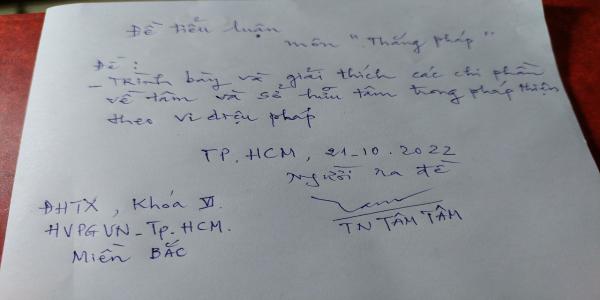 Đề tiểu luận
môn "Thắng pháp"
Đề :
- Trình bày và giải thích các chi phần
về tâm và sở hữu tâm trong pháp thiện
theo vi diệu pháp
TP. HCM, 21-10.2022
Người ra đề
ĐHTX, Khóa VI.
HVPGVN - Tp. HCM.
Miền BẮC
TN TÂM TÂM